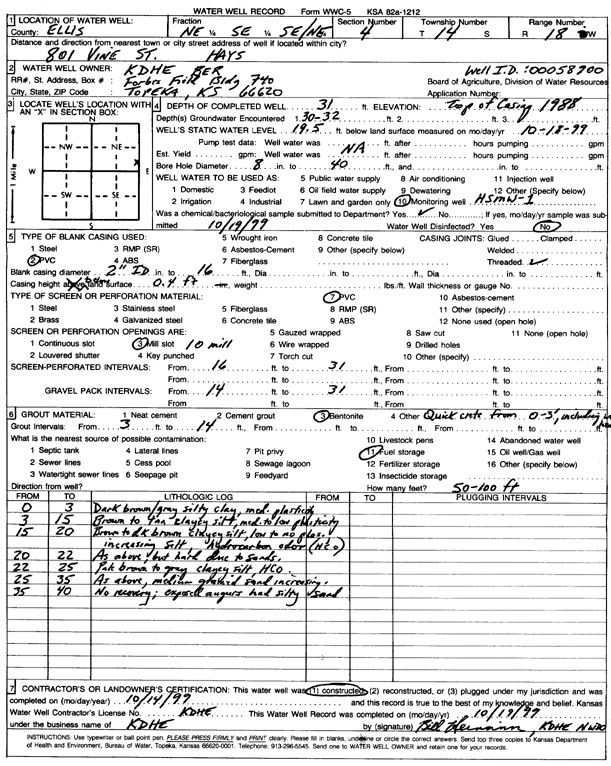 WATER WELL RECORD Form WWC-5 KSA 82a-1212
1 LOCATION OF WATER WELL: Fraction Section Number Township Number Range Number
County: ELLIS NE ¼ SE ¼ SE/NE ¼ 4 T 14 S R 18 W
Distance and direction from nearest town or city street address of well if located within city?
801 VINE ST. HAYS
2 WATER WELL OWNER: KDHE BER Well I.D.: 00058900
RR#, St. Address, Box #: Forbes Field Bldg 740 Board of Agriculture, Division of Water Resources
City, State, ZIP Code : TOPEKA, KS 66620 Application Number:
3 LOCATE WELL'S LOCATION WITH AN "X" IN SECTION BOX:
N
NW NE
W E
SW SE
S
1 Mile
X
4 DEPTH OF COMPLETED WELL 31 ft. ELEVATION: Top of Casing 1988
Depth(s) Groundwater Encountered 1 30-32 ft. 2. ft. 3. ft.
WELL'S STATIC WATER LEVEL 19.5 ft. below land surface measured on mo/day/yr 10-18-99
Pump test data: Well water was NA ft. after hours pumping gpm
Est. Yield gpm: Well water was ft. after hours pumping gpm
Bore Hole Diameter 8 in. to 40 ft., and in. to ft.
WELL WATER TO BE USED AS: 5 Public water supply 8 Air conditioning 11 Injection well
1 Domestic 3 Feedlot 6 Oil field water supply 9 Dewatering 12 Other (Specify below)
2 Irrigation 4 Industrial 7 Lawn and garden only 10 Monitoring well HSMW-1
Was a chemical/bacteriological sample submitted to Department? Yes ✓ No ; If yes, mo/day/yr sample was sub-
mitted 10/19/99 Water Well Disinfected? Yes No
5 TYPE OF BLANK CASING USED: 5 Wrought iron 8 Concrete tile CASING JOINTS: Glued Clamped
1 Steel 3 RMP (SR) 6 Asbestos-Cement 9 Other (specify below) Welded
2 PVC 4 ABS 7 Fiberglass Threaded ✓
Blank casing diameter 2" ID in. to 16 ft., Dia in. to ft., Dia in. to ft.
Casing height above land surface 0.4 ft in., weight lbs./ft. Wall thickness or gauge No.
TYPE OF SCREEN OR PERFORATION MATERIAL: 7 PVC 10 Asbestos-cement
1 Steel 3 Stainless steel 5 Fiberglass 8 RMP (SR) 11 Other (specify)
2 Brass 4 Galvanized steel 6 Concrete tile 9 ABS 12 None used (open hole)
SCREEN OR PERFORATION OPENINGS ARE: 5 Gauzed wrapped 8 Saw cut 11 None (open hole)
1 Continuous slot 3 Mill slot 10 mill 6 Wire wrapped 9 Drilled holes
2 Louvered shutter 4 Key punched 7 Torch cut 10 Other (specify)
SCREEN-PERFORATED INTERVALS: From 16 ft. to 31 ft., From ft. to ft.
From ft. to ft., From ft. to ft.
GRAVEL PACK INTERVALS: From 14 ft. to 31 ft., From ft. to ft.
From ft. to ft., From ft. to ft.
6 GROUT MATERIAL: 1 Neat cement 2 Cement grout 3 Bentonite 4 Other Quick crete from 0-3', including
Grout Intervals: From 3 ft. to 14 ft., From ft. to ft., From ft. to ft.
What is the nearest source of possible contamination: 10 Livestock pens 14 Abandoned water well
1 Septic tank 4 Lateral lines 7 Pit privy 11 Fuel storage 15 Oil well/Gas well
2 Sewer lines 5 Cess pool 8 Sewage lagoon 12 Fertilizer storage 16 Other (specify below)
3 Watertight sewer lines 6 Seepage pit 9 Feedyard 13 Insecticide storage
Direction from well? How many feet? 50-100 ft
FROM TO LITHOLOGIC LOG FROM TO PLUGGING INTERVALS
0 3 Dark brown/gray silty clay, med. plasticity
3 15 Brown to tan clayey silt, med. to low plasticity
15 20 Brown to dk brown clayey silt, low to no plas.
increasing silt hydrocarbon odor (HCO)
20 22 As above, but hard due to sands.
22 25 Pnk brown to gray clayey silt, HCO.
25 35 As above, medium grained sand increasing.
35 40 No recovery; exposed augurs had silty sand
7 CONTRACTOR'S OR LANDOWNER'S CERTIFICATION: This water well was (1) constructed, (2) reconstructed, or (3) plugged under my jurisdiction and was
completed on (mo/day/year) 10/14/99 and this record is true to the best of my knowledge and belief. Kansas
Water Well Contractor's License No. KDHE This Water Well Record was completed on (mo/day/yr) 10/19/99
under the business name of KDHE by (signature) KDHE NWDO
INSTRUCTIONS: Use typewriter or ball point pen. PLEASE PRESS FIRMLY and PRINT clearly. Please fill in blanks, underline or circle the correct answers. Send top three copies to Kansas Department
of Health and Environment, Bureau of Water, Topeka, Kansas 66620-0001. Telephone: 913-296-5545. Send one to WATER WELL OWNER and retain one for your records.